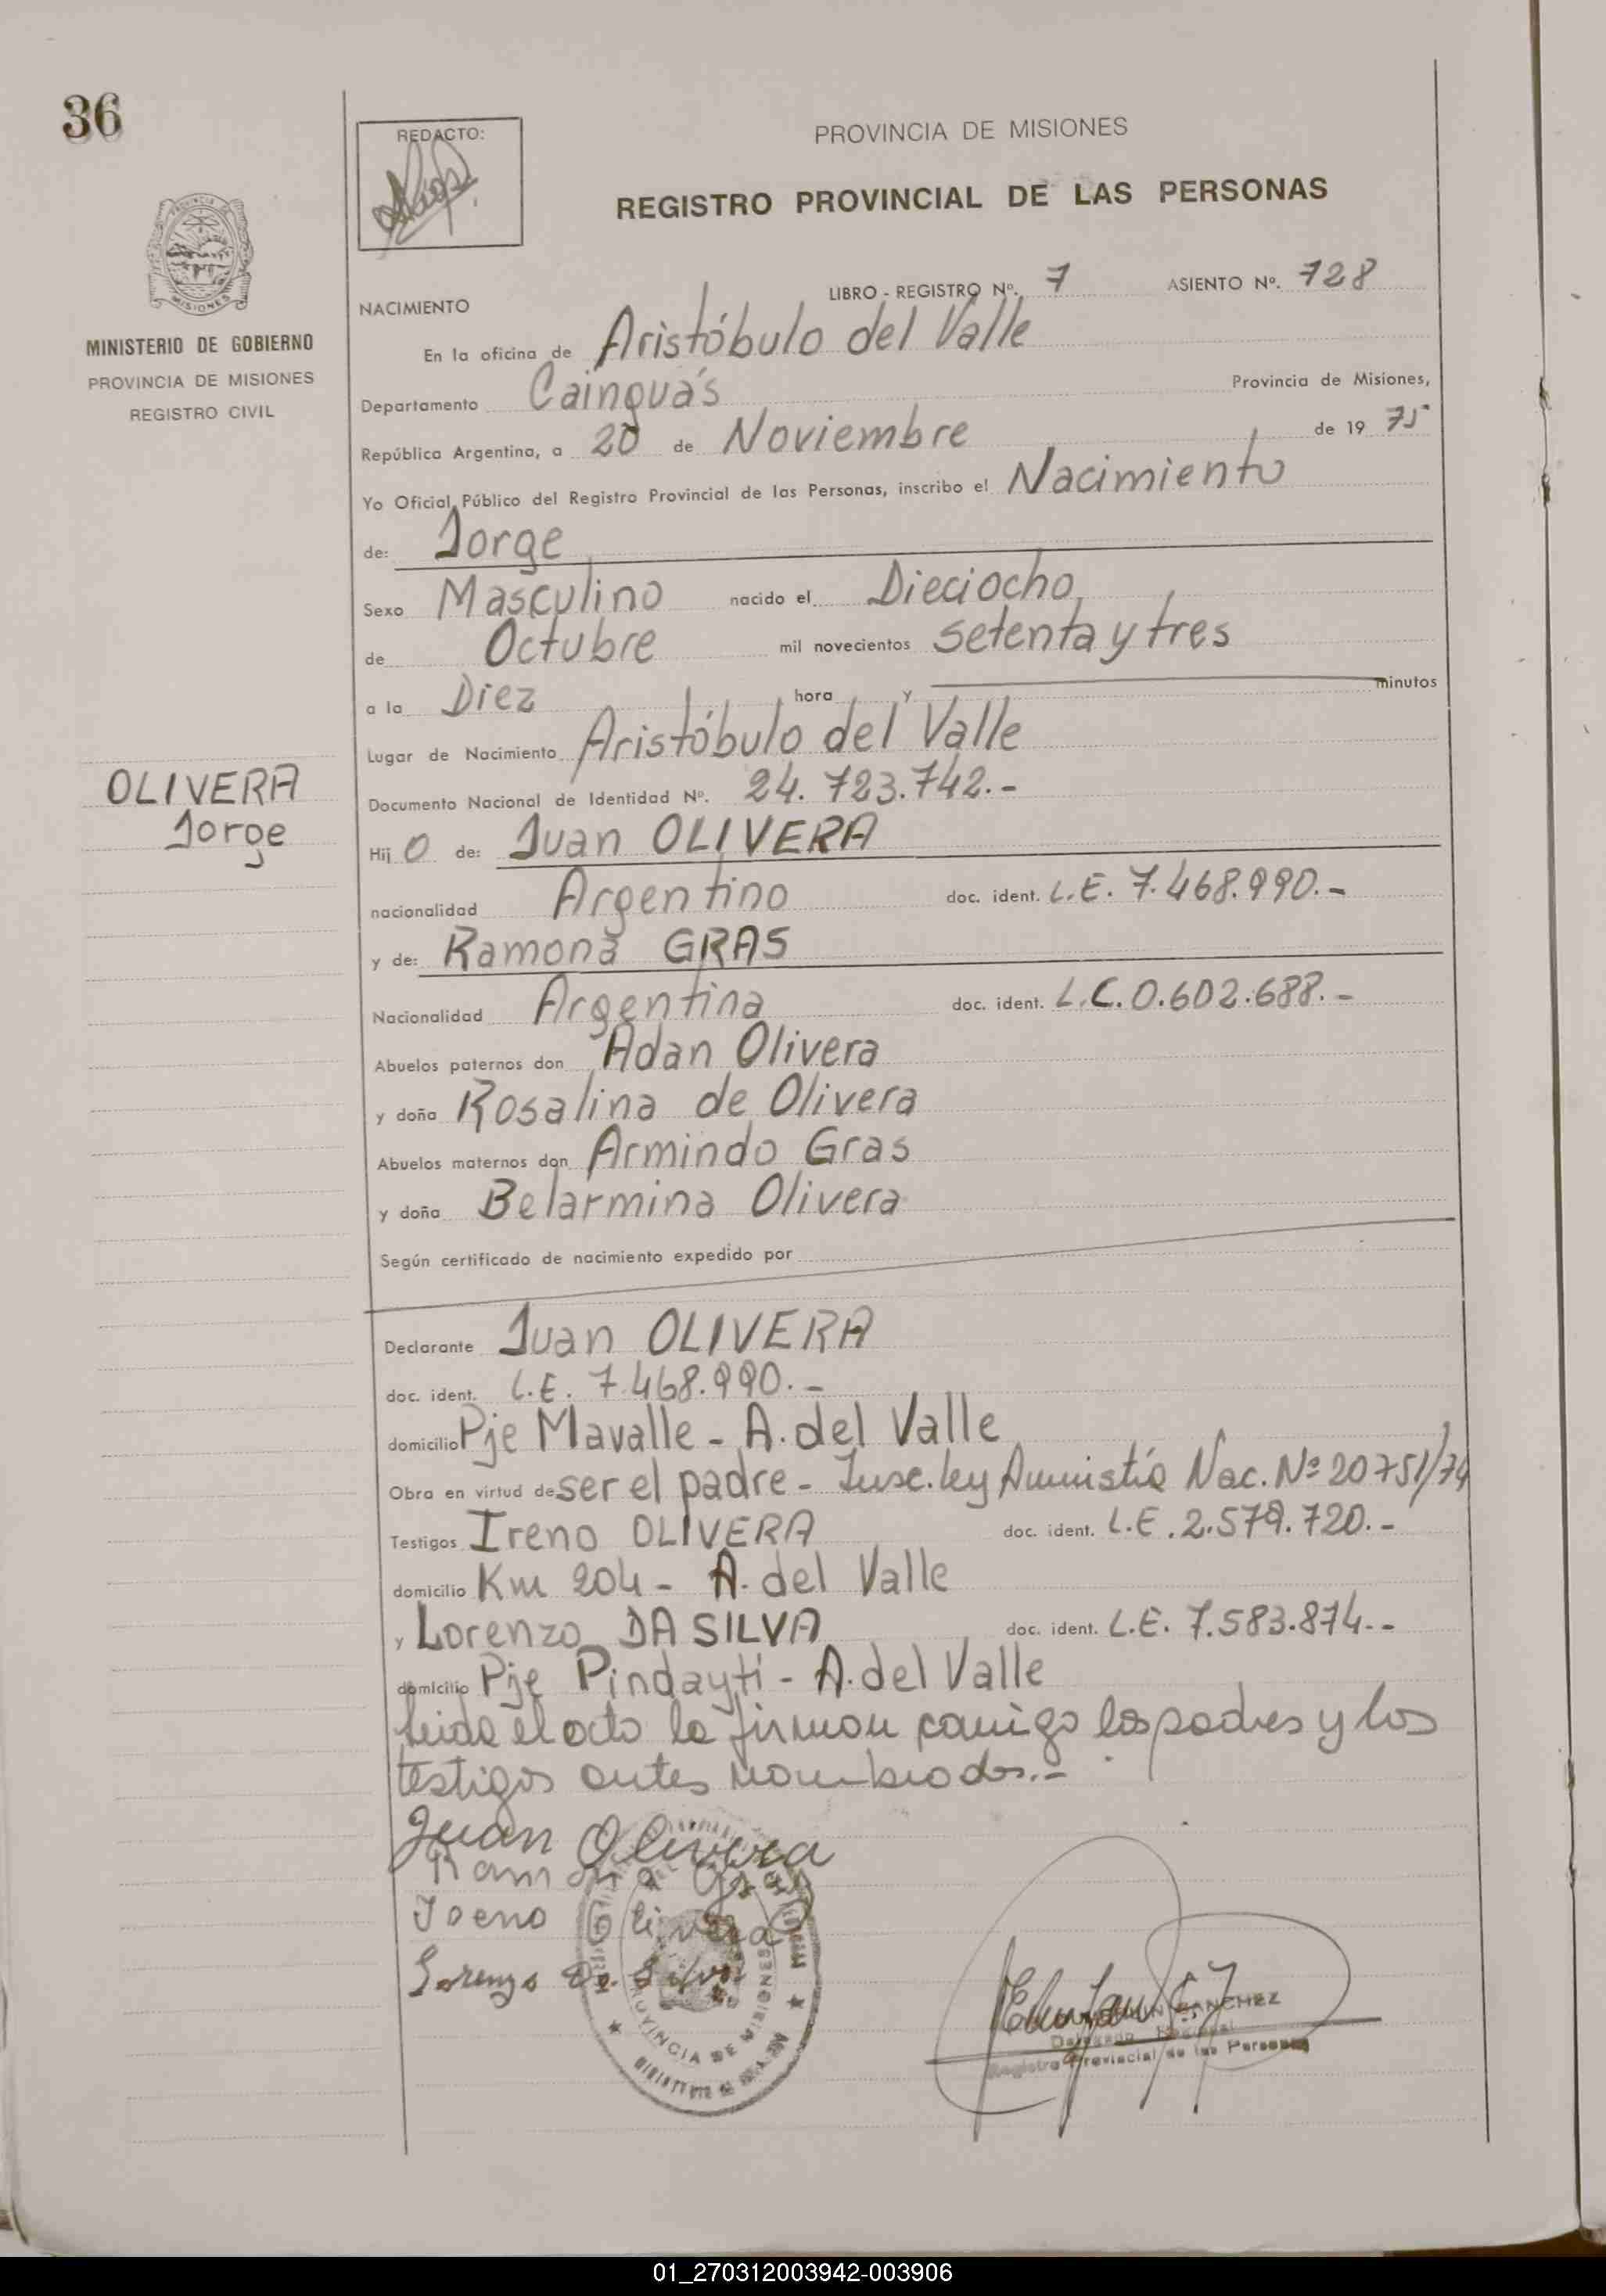 36
REDACTO:
PROVINCIA DE MISIONES
REGISTRO PROVINCIAL DE LAS PERSONAS
MISIONES
MINISTERIO DE GOBIERNO
PROVINCIA DE MISIONES
REGISTRO CIVIL
NACIMIENTO
LIBRO - REGISTRO Nº. 7 ASIENTO Nº. 728
En la oficina de Aristóbulo del Valle
Departamento Cainguás Provincia de Misiones,
República Argentina, a 20 de Noviembre de 19 75
Yo Oficial Público del Registro Provincial de las Personas, inscribo el Nacimiento
de: Jorge
Sexo Masculino nacido el Dieciocho
de Octubre mil novecientos setenta y tres
a la Diez hora y minutos
Lugar de Nacimiento Aristóbulo del Valle
OLIVERA
Jorge
Documento Nacional de Identidad Nº. 24.723.742.-
Hij o de: Juan OLIVERA
nacionalidad Argentino doc. ident. L.E. 7.468.990.-
y de: Ramona GRAS
Nacionalidad Argentina doc. ident. L.C. 0.602.688.-
Abuelos paternos don Adan Olivera
y doña Rosalina de Olivera
Abuelos maternos don Armindo Gras
y doña Belarmina Olivera
Según certificado de nacimiento expedido por
Declarante Juan OLIVERA
doc. ident. L.E. 7.468.990.-
domicilio Pje Mavalle - A. del Valle
Obra en virtud de ser el padre - Insc. ley Amnistía Nac. Nº 20751/74
Testigos Ireno OLIVERA doc. ident. L.E. 2.579.720.-
domicilio Km 204 - A. del Valle
y Lorenzo DA SILVA doc. ident. L.E. 7.583.874.--
domicilio Pje Pindaytí - A. del Valle
leida el acta la firman conmigo los padres y los
testigos antes nombrados.-
Juan Olivera
Ramona Gras
Ireno Olivera
Lorenzo Da Silva
PROVINCIA DE MISIONES
SANCHEZ
Registro Provincial de las Personas
01_270312003942-003906